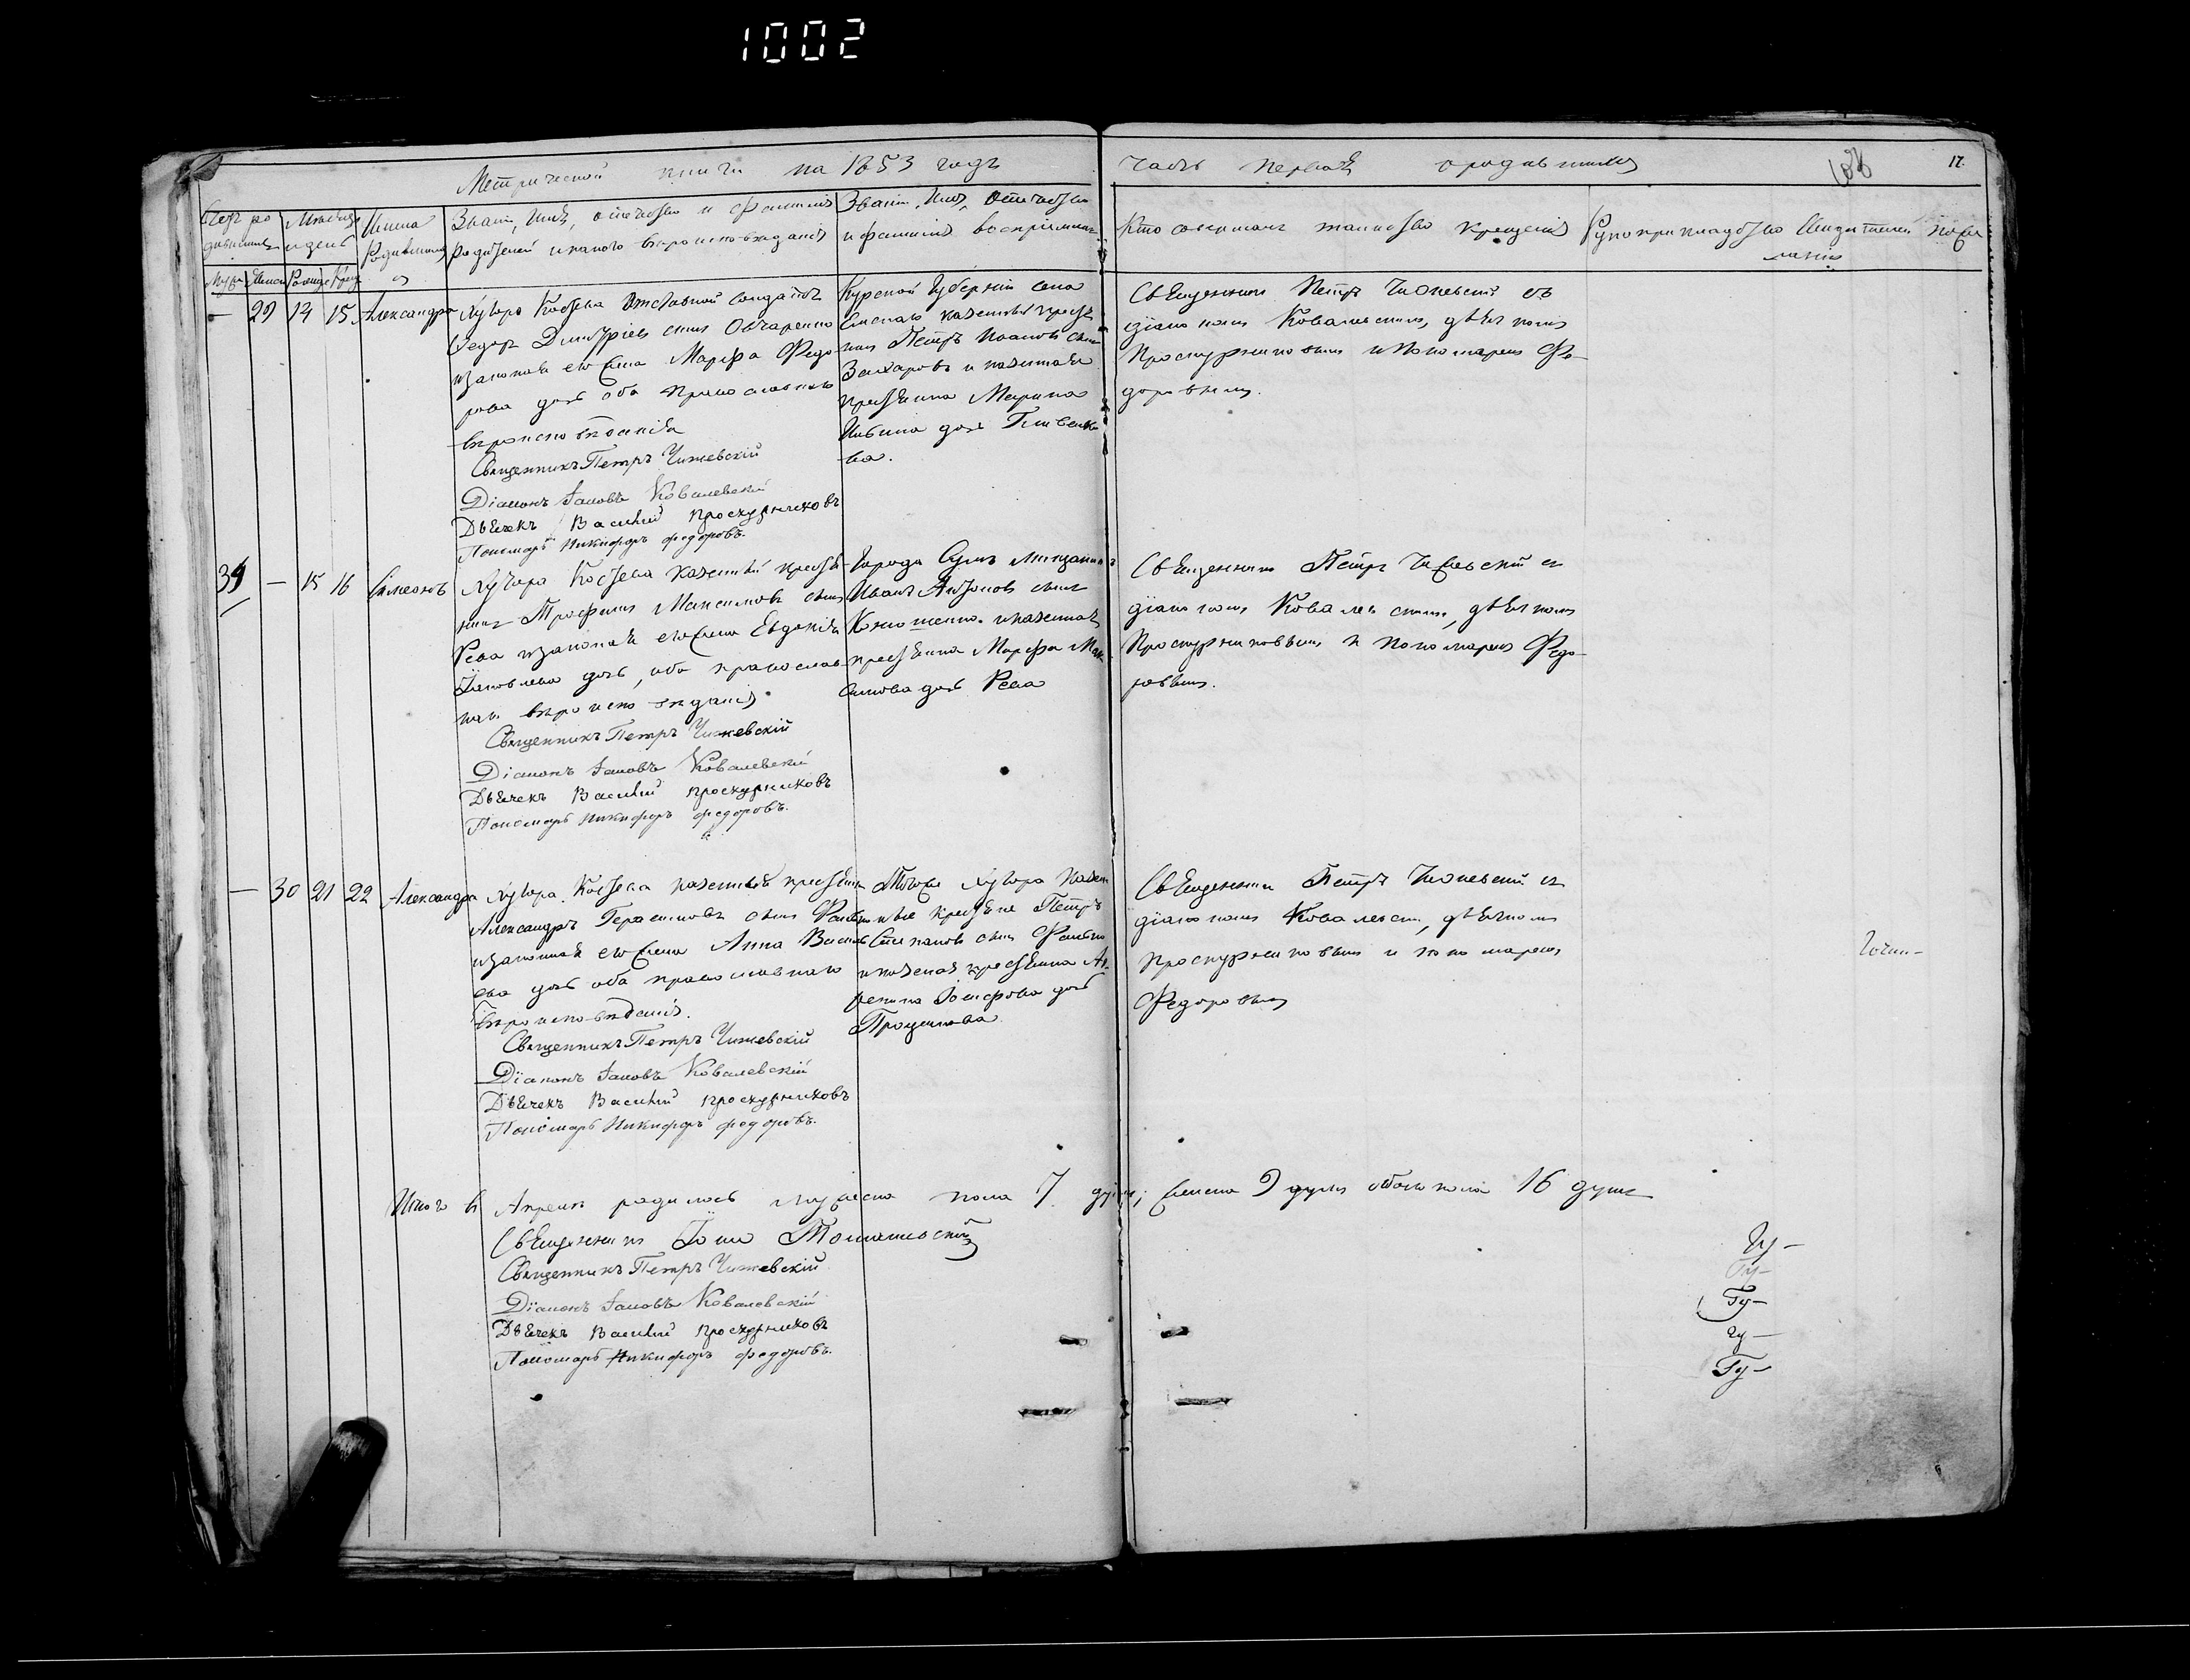 1002
Метрической книги на 1853 годъ
часть первая о родившихся
17.
Счетъ ро
дившихся
Мѣсяцъ
и день
Имена
родивших
ся
Званіе, имя, отечество и фамилія
родителей и какого вѣроисповѣданія
Званіе, имя, отечество
и фамилія воспріемник
Кто совершалъ таинство крещенія
Рукоприкладство свидѣтелей по же
ланію
29 14 15 Александра
Хутора Костева отставной солдатъ
Федоръ Дмитріевъ сынъ Овчаренко
и законная его жена Марфа Федо
рова дочь оба православнаго
вѣроисповѣданія
Священникъ Петръ Чижевскій
Діаконъ Іаковъ Ковалевскій
Дьячекъ Василий Проскурниковъ
Пономарь Никифоръ Федоровъ.
Курской Губерніи села
казенный кресть
нинъ Петръ Ивановъ сынъ
Захаровъ и казенная
крестьянка Марина
дочь
ва.
Священникъ Петръ Чижевскій съ
діакономъ Ковалевскимъ, дьячкомъ
Проскурниковымъ и пономаремъ Фе-
доровымъ.
39 — 15 16 Симеонъ
Хутора Костева казенный крестья
нинъ Трофимъ Максимовъ сынъ
Рева и законная его жена Евдокія
Іаковлева дочь, оба православ
наго вѣроисповѣданія
Священникъ Петръ Чижевскій
Діаконъ Іаковъ Ковалевскій
Дьячекъ Василий Проскурниковъ
Пономарь Никифоръ Федоровъ.
Города Сумъ мѣщанинъ
Иванъ Антоновъ сынъ
и казенная
крестьянка Марфа Мак
симова дочь Рева
Священникъ Петръ Чижевскій съ
діакономъ Ковалевскимъ, дьячкомъ
Проскурниковымъ и пономаремъ Федо-
ровымъ.
— 30 21 22 Александра
Хутора Костева казенный крестьянинъ
Александръ Герасимовъ сынъ
и законная его жена Анна Василь
ева дочь оба православнаго
вѣроисповѣданія.
Священникъ Петръ Чижевскій
Діаконъ Іаковъ Ковалевскій
Дьячекъ Василий Проскурниковъ
Пономарь Никифоръ Федоровъ.
Тогоже Хутора казен
ные крестьяне Петръ
Степановъ сынъ
и казеная крестьянка Аг
репина Іосифова дочь
Проценкова
Священникъ Петръ Чижевскій съ
діакономъ Ковалевскимъ, дьячкомъ
Проскурниковымъ и пономаремъ
Федоровымъ
Итого въ Апрелѣ родилось мужеска пола 7 душъ, женска 9 душъ обоего пола 16 душъ
Священникъ Іоаннъ
Священникъ Петръ Чижевскій
Діаконъ Іаковъ Ковалевскій
Дьячекъ Василий Проскурниковъ
Пономарь Никифоръ Федоровъ.